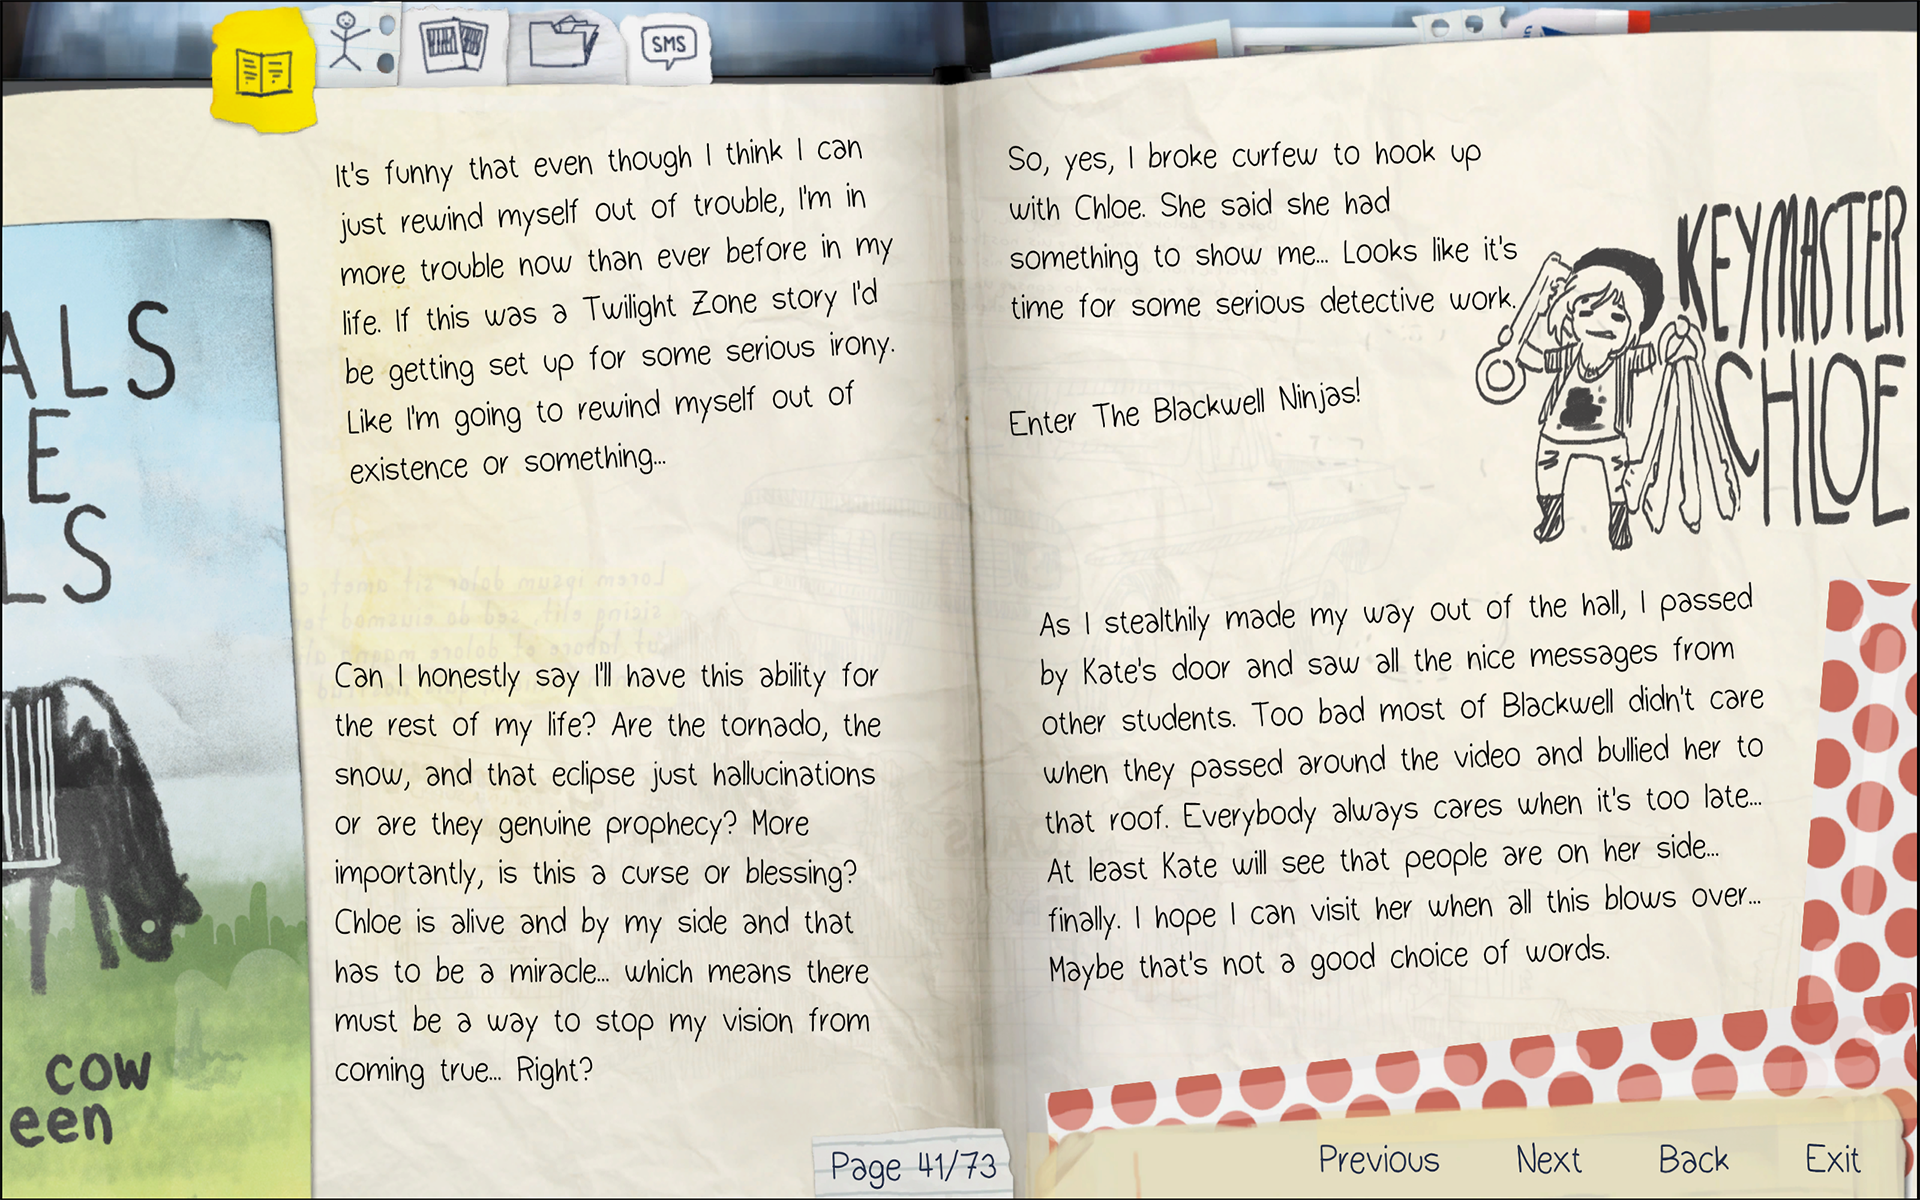 SMS
ALS
E
LS
cow
een
It's funny that even though I think I can
just rewind myself out of trouble, I'm in
more trouble now than ever before in my
life. If this was a Twilight Zone story I'd
be getting set up for some serious irony.
Like I'm going to rewind myself out of
existence or something...
Can I honestly say I'll have this ability for
the rest of my life? Are the tornado, the
snow, and that eclipse just hallucinations
or are they genuine prophecy? More
importantly, is this a curse or blessing?
Chloe is alive and by my side and that
has to be a miracle... which means there
must be a way to stop my vision from
coming true... Right?
So, yes, I broke curfew to hook up
with Chloe. She said she had
something to show me... Looks like it's
time for some serious detective work.
Enter The Blackwell Ninjas!
KEYMASTER
CHLOE
As I stealthily made my way out of the hall, I passed
by Kate's door and saw all the nice messages from
other students. Too bad most of Blackwell didn't care
when they passed around the video and bullied her to
that roof. Everybody always cares when it's too late...
At least Kate will see that people are on her side...
finally. I hope I can visit her when all this blows over...
Maybe that's not a good choice of words.
Page 41/73
Previous Next Back Exit